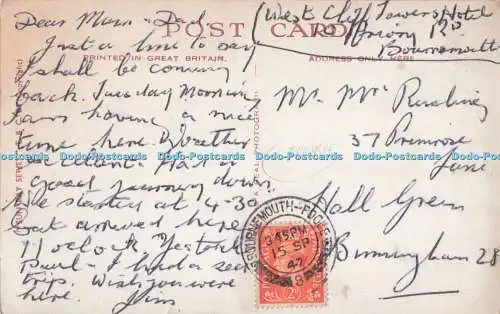 Dear Mum & Dad
POST CARD
(West Cliff Towers Hotel
Priory Rd
Bournemouth
Just a line to say
PRINTED IN GREAT BRITAIN.
ADDRESS ONLY HERE
I shall be coming
back Tuesday Morning
Am having a nice
time here. Weather
excellent. Had a
good journey down
We started at 4-30
but arrived here
11 o'clock. Yesterday
Paul & I had a sea
trip. Wish you were
here. Jim
Mr. Mrs
37 Primrose
Lane
Hall Green
Birmingham 28
BOURNEMOUTH-POOLE
9 45 PM
15 SP
47
Dodo-Postcards Dodo-Postcards Dodo-Postcards Dodo-Postcards Dodo-Postcards